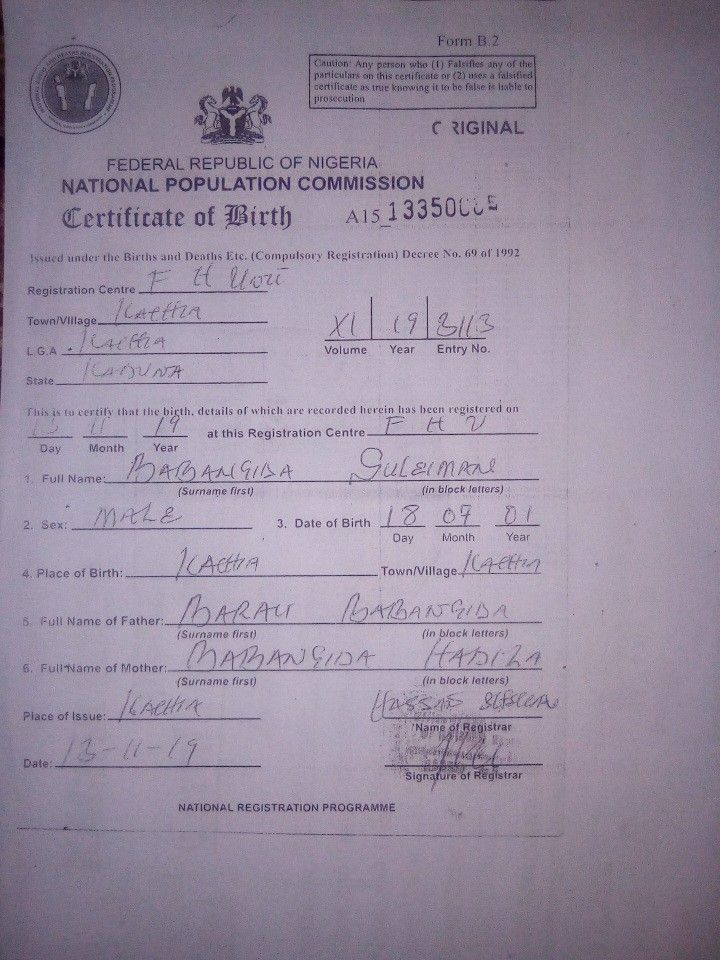 Form B.2
Caution: Any person who (1) Falsifies any of the
particulars on this certificate or (2) uses a falsified
certificate as true knowing it to be false is liable to
prosecution
ORIGINAL
FEDERAL REPUBLIC OF NIGERIA
NATIONAL POPULATION COMMISSION
Certificate of Birth A15
Issued under the Births and Deaths Etc. (Compulsory Registration) Decree No. 69 of 1992
Registration Centre F H
Town/Village KACHIA
L.G.A. KACHIA
State KADUNA
XI 19 3113
Volume Year Entry No.
This is to certify that the birth, details of which are recorded herein has been registered on
13 11 19 at this Registration Centre F H U
Day Month Year
1. Full Name: BABANGIDA SULEIMAN
(Surname first) (in block letters)
2. Sex: MALE 3. Date of Birth 18 07 01
Day Month Year
4. Place of Birth: KACHIA Town/Village KACHIA
5. Full Name of Father: BARAU BABANGIDA
(Surname first) (in block letters)
6. Full Name of Mother: BABANGIDA HADIZA
(Surname first) (in block letters)
Place of Issue: KACHIA
Name of Registrar
Date: 13-11-19
Signature of Registrar
NATIONAL REGISTRATION PROGRAMME